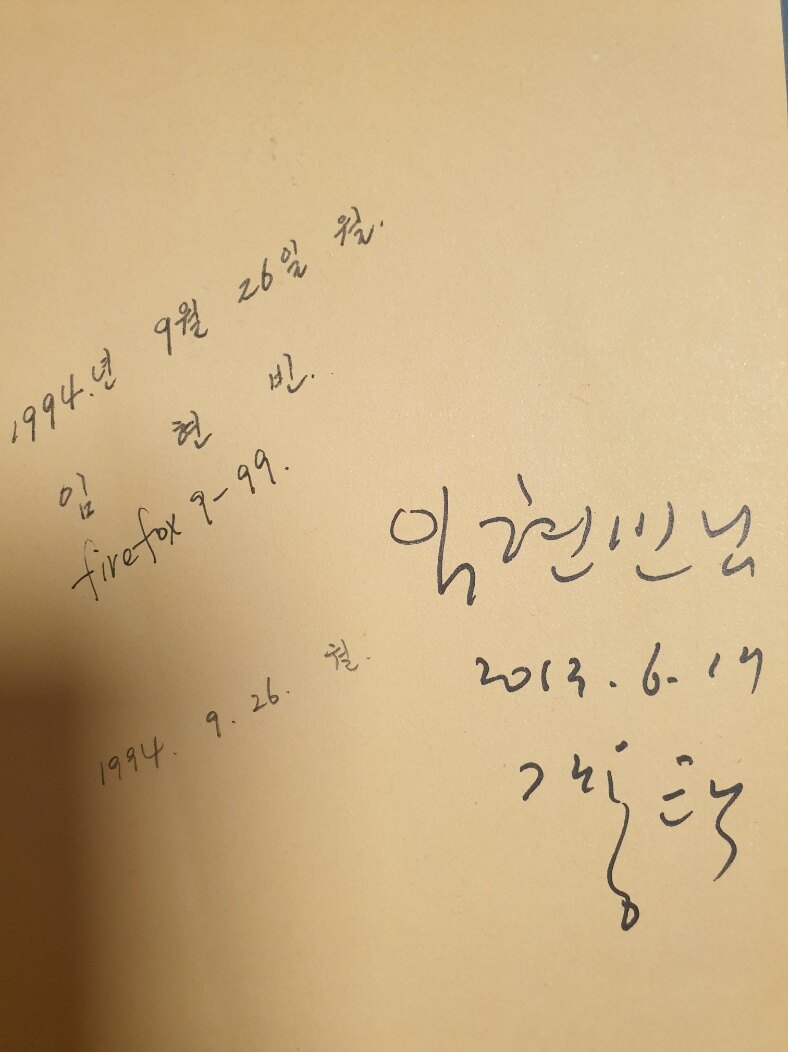 1994.년 9월 26일 월.
임 현 빈.
firefox 9-99.
1994. 9. 26. 월.
임현빈님
2013. 6. 17